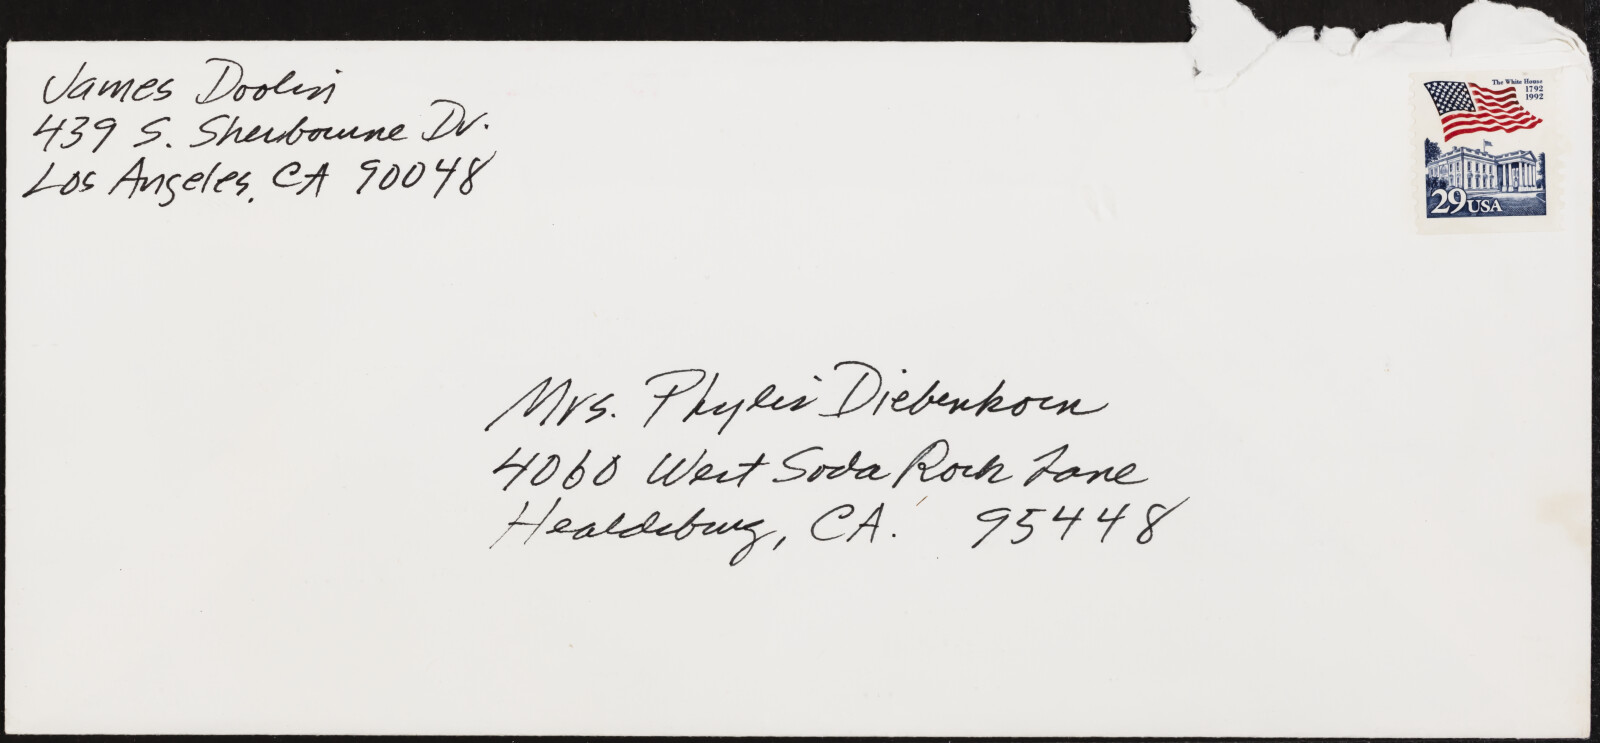 James Doolin
439 S. Sherbourne Dr.
Los Angeles, CA 90048
The White House
1792
1992
29 USA
Mrs. Phyllis Diebenkorn
4060 West Soda Rock Lane
Healdsburg, CA. 95448